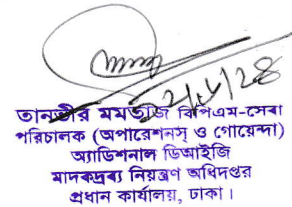 তানভীর মমতাজ বিপিএম-সেবা
পরিচালক (অপারেশনস্ ও গোয়েন্দা)
অ্যাডিশনাল ডিআইজি
মাদকদ্রব্য নিয়ন্ত্রণ অধিদপ্তর
প্রধান কার্যালয়, ঢাকা।